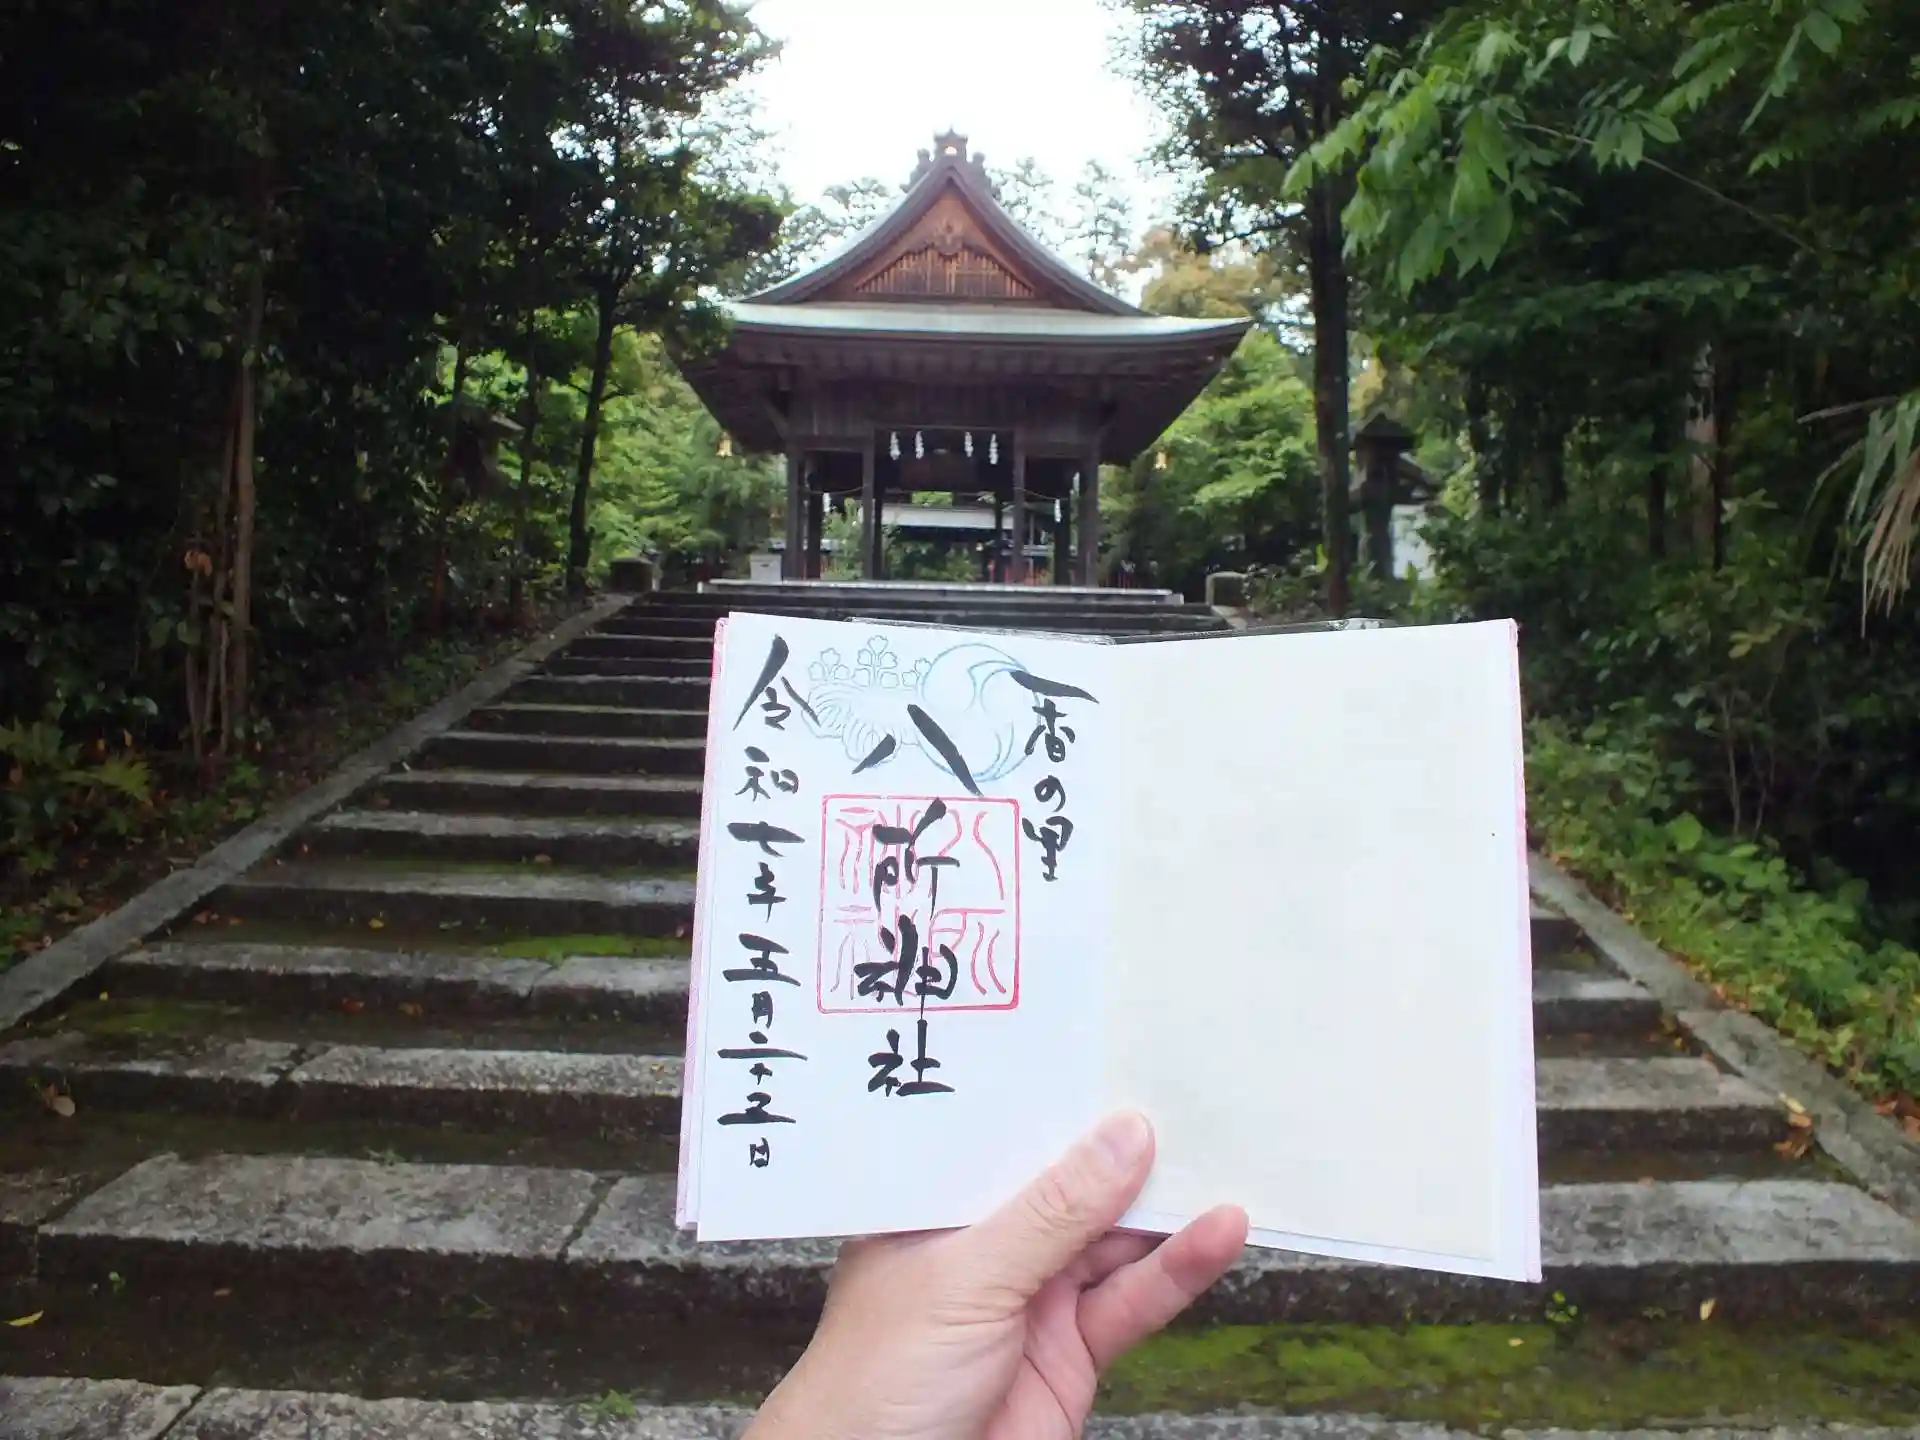 香の里
八所神社
八所神社
令和七年五月二十五日